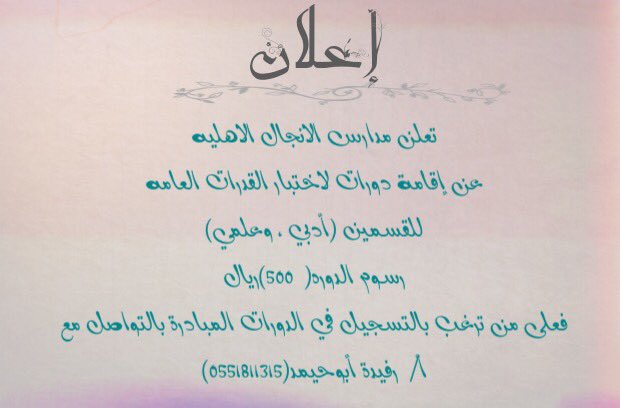 إعلان
تعلن مدارس الانجال الاهليه
عن إقامة دورات لاختبار القدرات العامه
للقسمين (أدبي ، وعلمي)
رسوم الدوره( 500)ريال
فعلى من ترغب بالتسجيل في الدورات المبادرة بالتواصل مع
أ/ رفيدة أبوحيمد(0551811315)